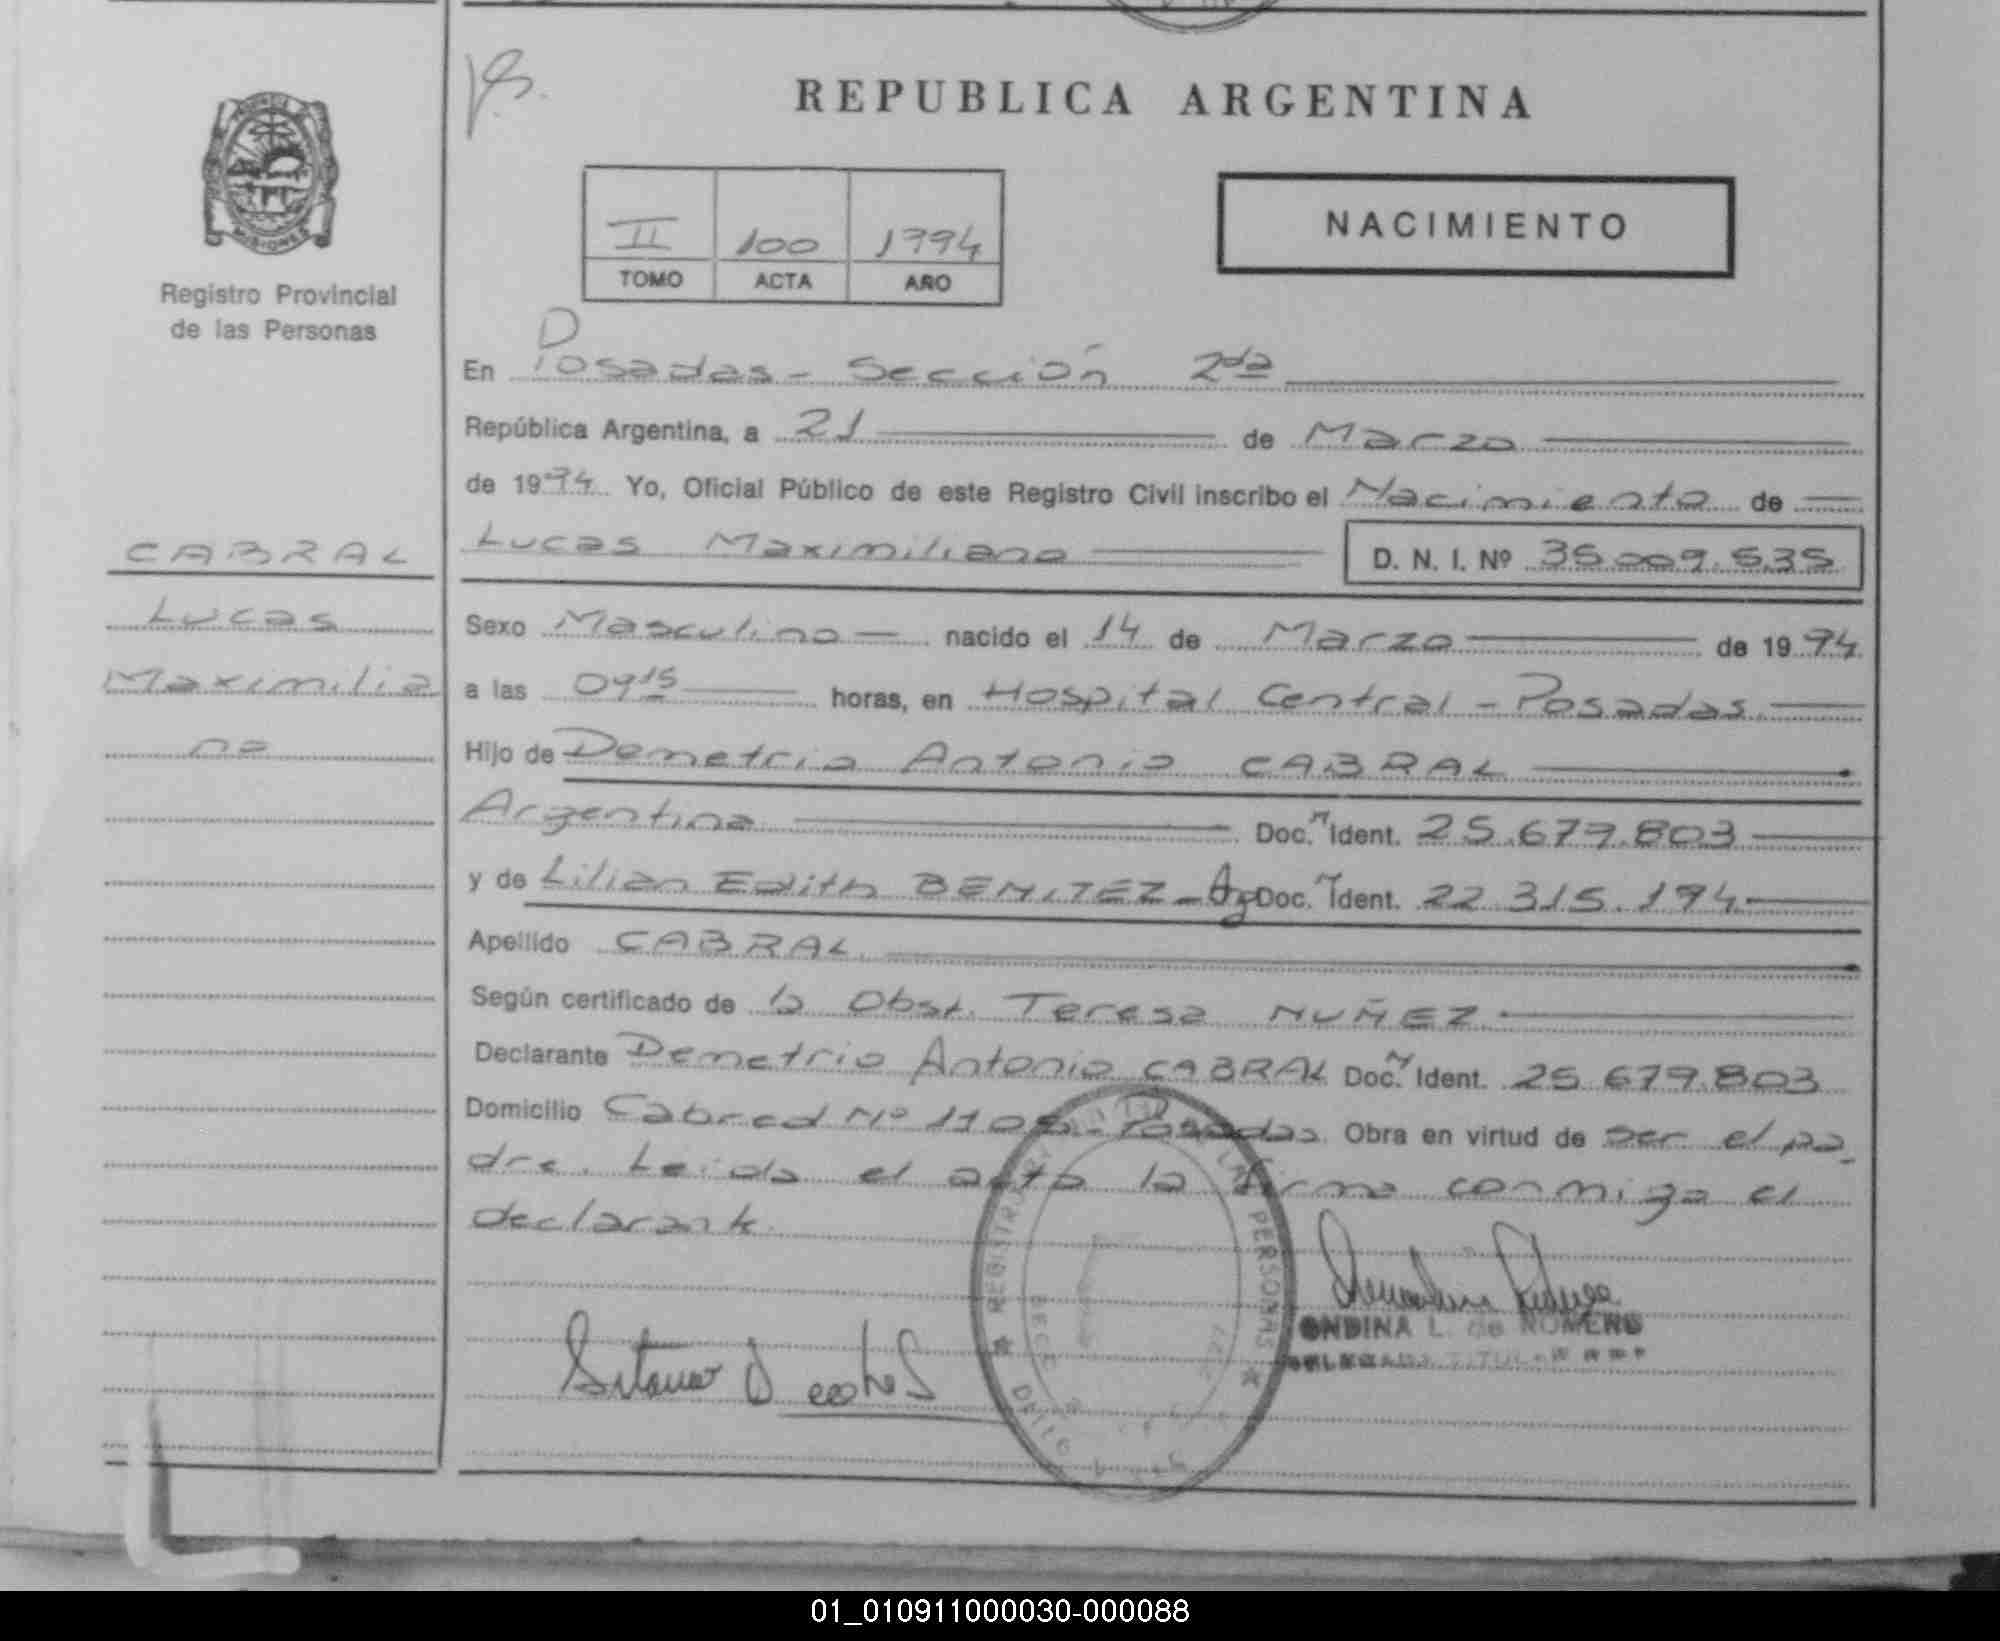 REPUBLICA ARGENTINA
MISIONES
Registro Provincial
de las Personas
II 100 1994
TOMO ACTA AÑO
NACIMIENTO
En Posadas - Sección 2da
República Argentina, a 21 de Marzo
de 1994. Yo, Oficial Público de este Registro Civil inscribo el Nacimiento de
CABRAL
Lucas
Maximilia
no
Lucas Maximiliano D. N. I. Nº 35.009.535
Sexo Masculino nacido el 14 de Marzo de 1994
a las 09 15 horas, en Hospital Central - Posadas.
Hijo de Demetrio Antonio CABRAL
Argentina Doc. N Ident. 25.679.803
y de Lilian Edith BENITEZ - Ag Doc. N Ident. 22.315.194
Apellido CABRAL
Según certificado de la Obst. Teresa NUÑEZ
Declarante Demetrio Antonio CABRAL Doc. N Ident. 25.679.803
Domicilio Cabred Nº - Posadas. Obra en virtud de ser el pa
dre. Leida el acta la firma conmigo el
declarante.
REGISTRO LAS PERSONAS
ONDINA L. de ROMERO
DELEGADA TITULAR
01_010911000030-000088